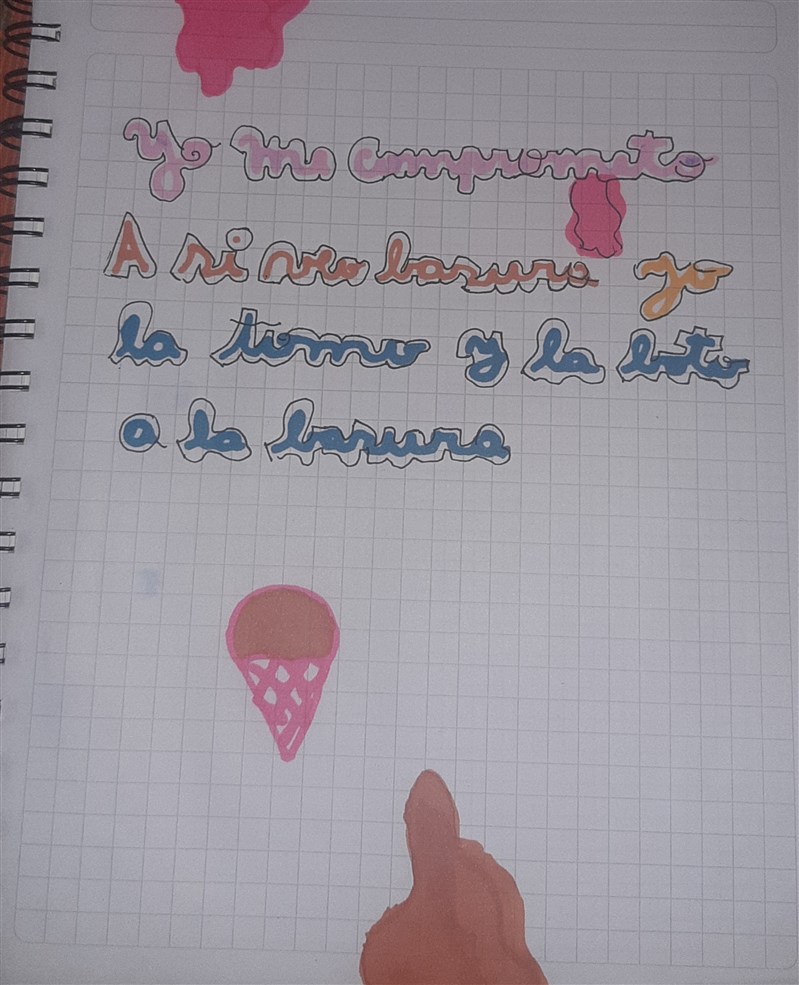 Yo me comprometo
A si veo basura yo
la tomo y la boto
a la basura